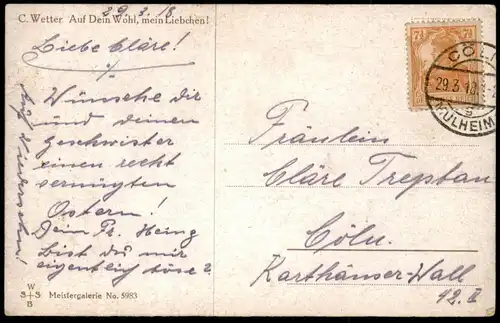 C. Wetter. Auf Dein Wohl, mein Liebchen!
29. 3. 18.
Liebe Cläre!
Wünsche dir
und deinen
Geschwister
einen recht
vernügten
Ostern!
Dein Fr. Heing
Bist du mir
eigentlig böse?
Auf Wiedersehen!
W
S+S
B
Meistergalerie No. 5983
7½
CÖLN
29.3.18
MÜLHEIM
Fräulein
Cläre Treptau
Cöln.
Karthäuser-Wall
12. II